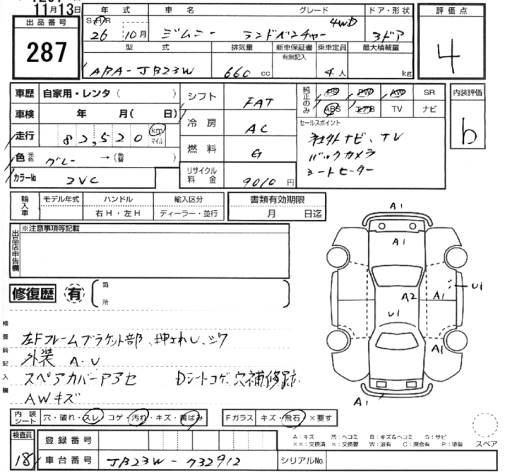 11月13日
年式 グレード ドア・形状 評価点
出品番号
287
26年 10月 ジムニー ランドベンチャー 4WD 3ドア 4
型式 排気量 新車保証書 乗車定員 最大積載量
有無記入
ABA-JB23W 660cc 4人 kg
車歴 自家用・レンタ( ) シフト FAT 純正のみ SR 内装評価
車検 年 月( 日) 冷房 AC ABS TV ナビ b
走行 82,520 km マイル 燃料 G セールスポイント
色 グレー→( ) 社外ナビ、TV
バックカメラ
シートヒーター
カラーNo ZVC リサイクル料金 9010円
輸入車 モデル年式 ハンドル 輸入区分 書類有効期限
右H・左H ディーラー・並行 月 日迄
出品店申告欄 ※注意事項等記載
修復歴 有 箇所
検査員記入欄
左Fフレームブラケット部、押され、シワ
外装 A・U
スペアカバーアワセ Dシートコゲ穴補修跡
AWキズ
A1
A1
A2 A1 U1
U1
A1
A1
内装シート 穴・破れ・スレ コゲ・汚れ・キズ・黄ばみ Fガラス キズ・飛石・×要す
スペア
検査員 18
登録番号
車台番号 JB23W-732912 シリアルNo.
A:キズ U:ヘコミ B:キズ&ヘコミ S:サビ